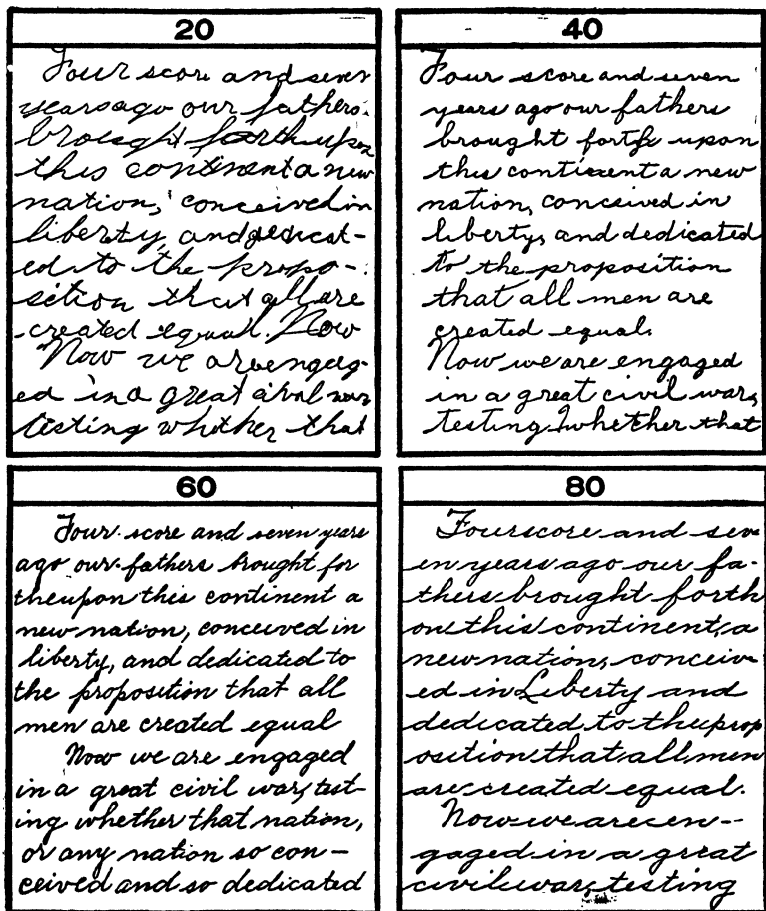 20
Four score and seven
years ago our fathers
brought forth upon
this continent a new
nation, conceived in
liberty, and dedicat-
ed to the propo-
sition that all are
created equal. Now
Now we are engag-
ed in a great civil war
testing whether that
40
Four score and seven
years ago our fathers
brought forth upon
this continent a new
nation, conceived in
liberty, and dedicated
to the proposition
that all men are
created equal.
Now we are engaged
in a great civil war,
testing whether that
60
Four score and seven years
ago our fathers brought for
theupon this continent a
new nation, conceived in
liberty, and dedicated to
the proposition that all
men are created equal
Now we are engaged
in a great civil war, test-
ing whether that nation,
or any nation so con-
ceived and so dedicated
80
Fourscore and sev
en years ago our fa-
thers brought forth
on this continent, a
new nation, conceiv
ed in Liberty and
dedicated to the prop
osition that all men
are created equal.
Now we are en-
gaged in a great
civil war, testing